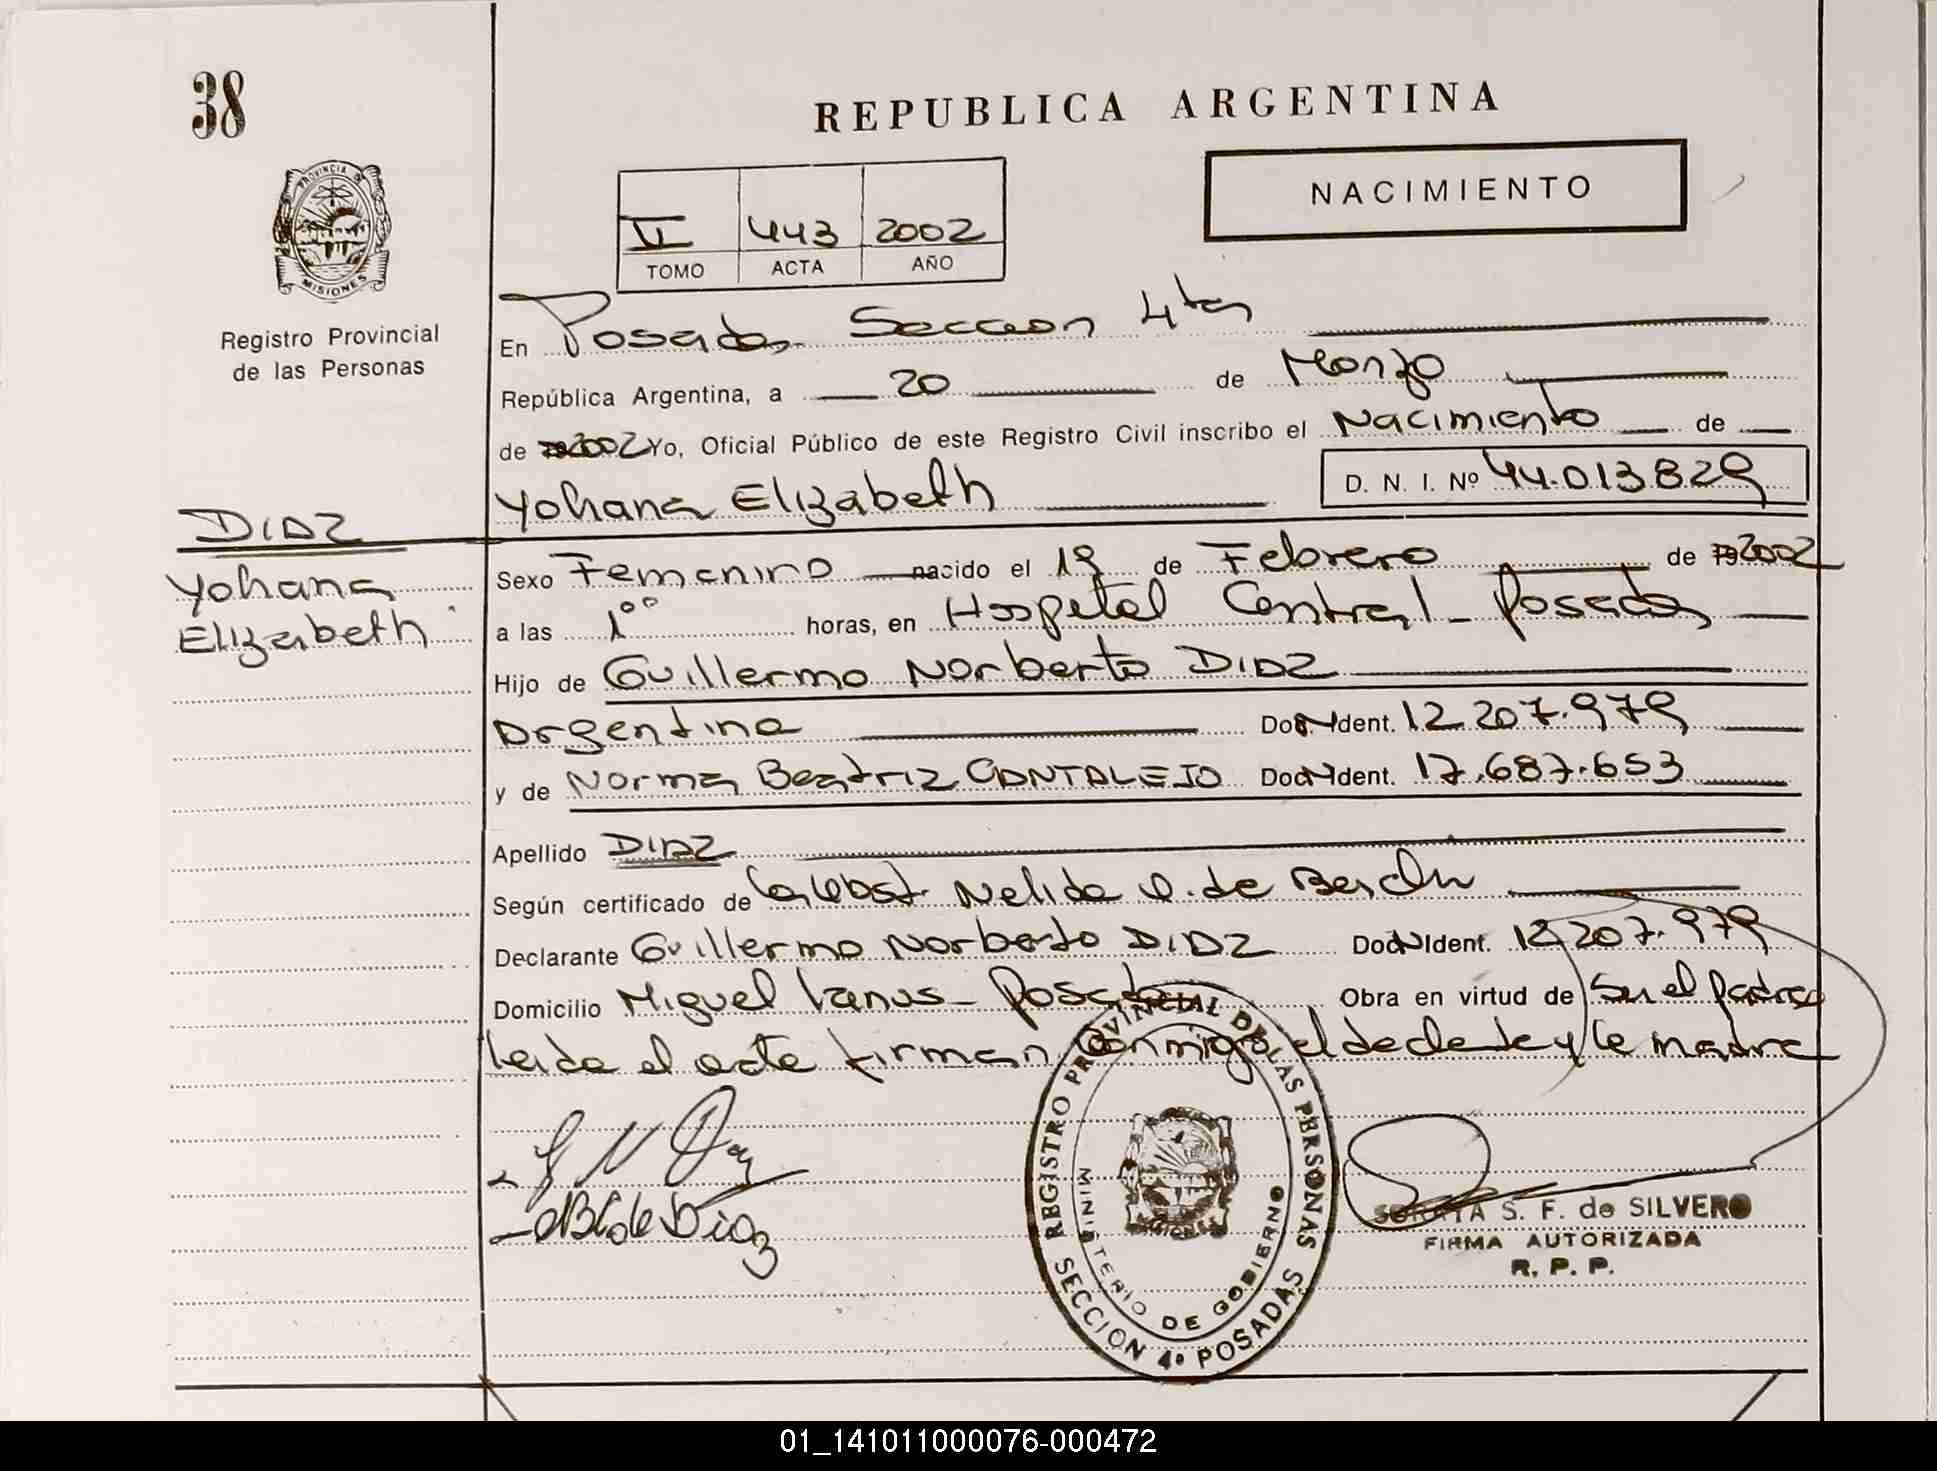 38
REPUBLICA ARGENTINA
NACIMIENTO
PROVINCIA DE MISIONES
II 443 2002
TOMO ACTA AÑO
Registro Provincial
de las Personas
En Posadas Seccion 4ta
República Argentina, a 20 de Marzo
de 2002 Yo, Oficial Público de este Registro Civil inscribo el Nacimiento de
Yohana Elizabeth D. N. I. Nº 44.013.829
DIAZ
Yohana
Elizabeth
Sexo Femenino nacido el 19 de Febrero de 2002
a las 1⁰⁰ horas, en Hospital Central - Posadas
Hijo de Guillermo Norberto DIAZ
Argentina Doc. N Ident. 12.207.979
y de Norma Beatriz CANTALEJO Doc N Ident. 17.687.653
Apellido DIAZ
Según certificado de la Obst. Nelida de
Declarante Guillermo Norberto DIAZ Doc N Ident. 12.207.979
Domicilio Miguel Lanus - Posadas Obra en virtud de Ser el padre
Leida el acta firman conmigo, el declarante y la madre
de Diaz
REGISTRO PROVINCIAL DE LAS PERSONAS
MINISTERIO DE GOBIERNO
SECCION 4º POSADAS
SORAYA S. F. de SILVERO
FIRMA AUTORIZADA
R. P. P.
01_141011000076-000472